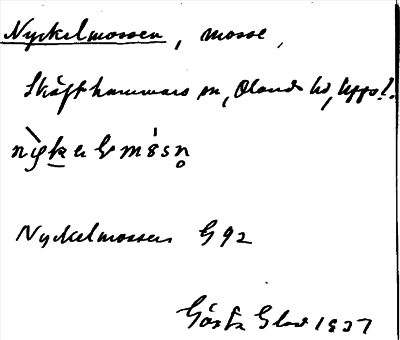 Nyckelmossen, mosse,
Skäfthammars sn, Olands hd, Upps. l.
Nyckelmossen G 92
Gösta 1927